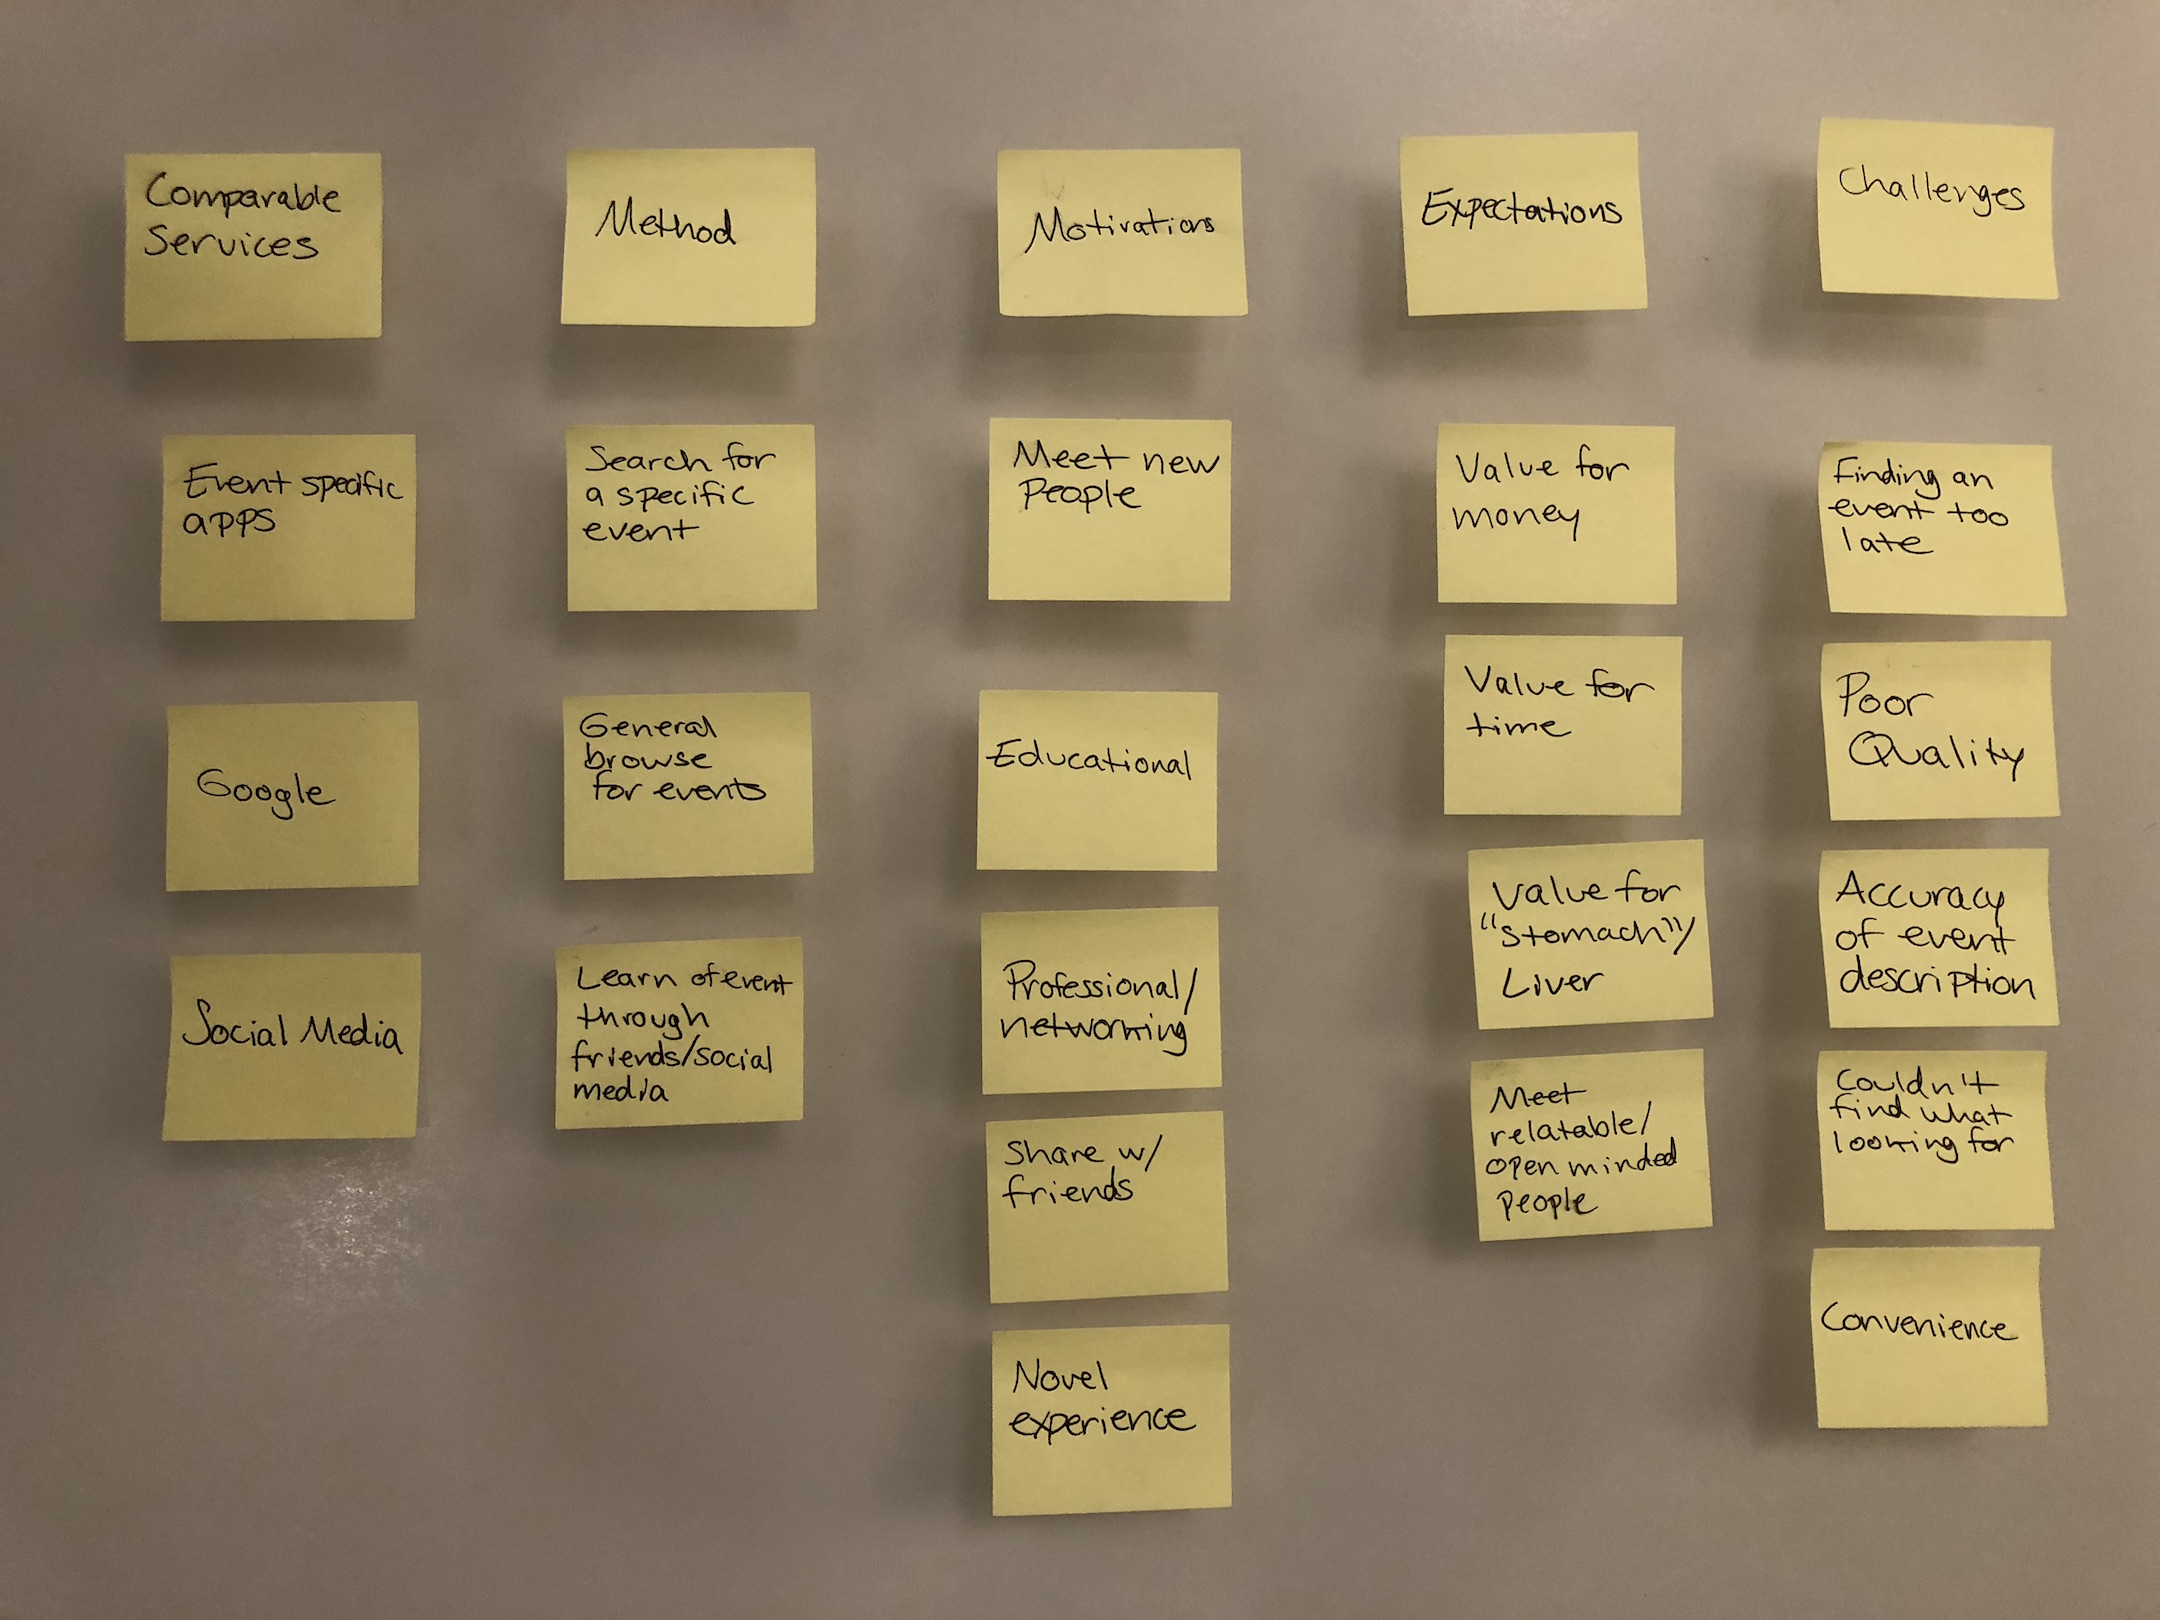 Comparable
Services
Event specific
apps
Google
Social Media
Method
Search for
a specific
event
General
browse
for events
Learn of event
through
friends/social
media
Motivations
Meet new
People
Educational
Professional/
networking
Share w/
friends
Novel
experience
Expectations
Value for
money
Value for
time
Value for
"stomach"/
Liver
Meet
relatable/
open minded
people
Challenges
Finding an
event too
late
Poor
Quality
Accuracy
of event
description
Couldn't
find what
looking for
Convenience